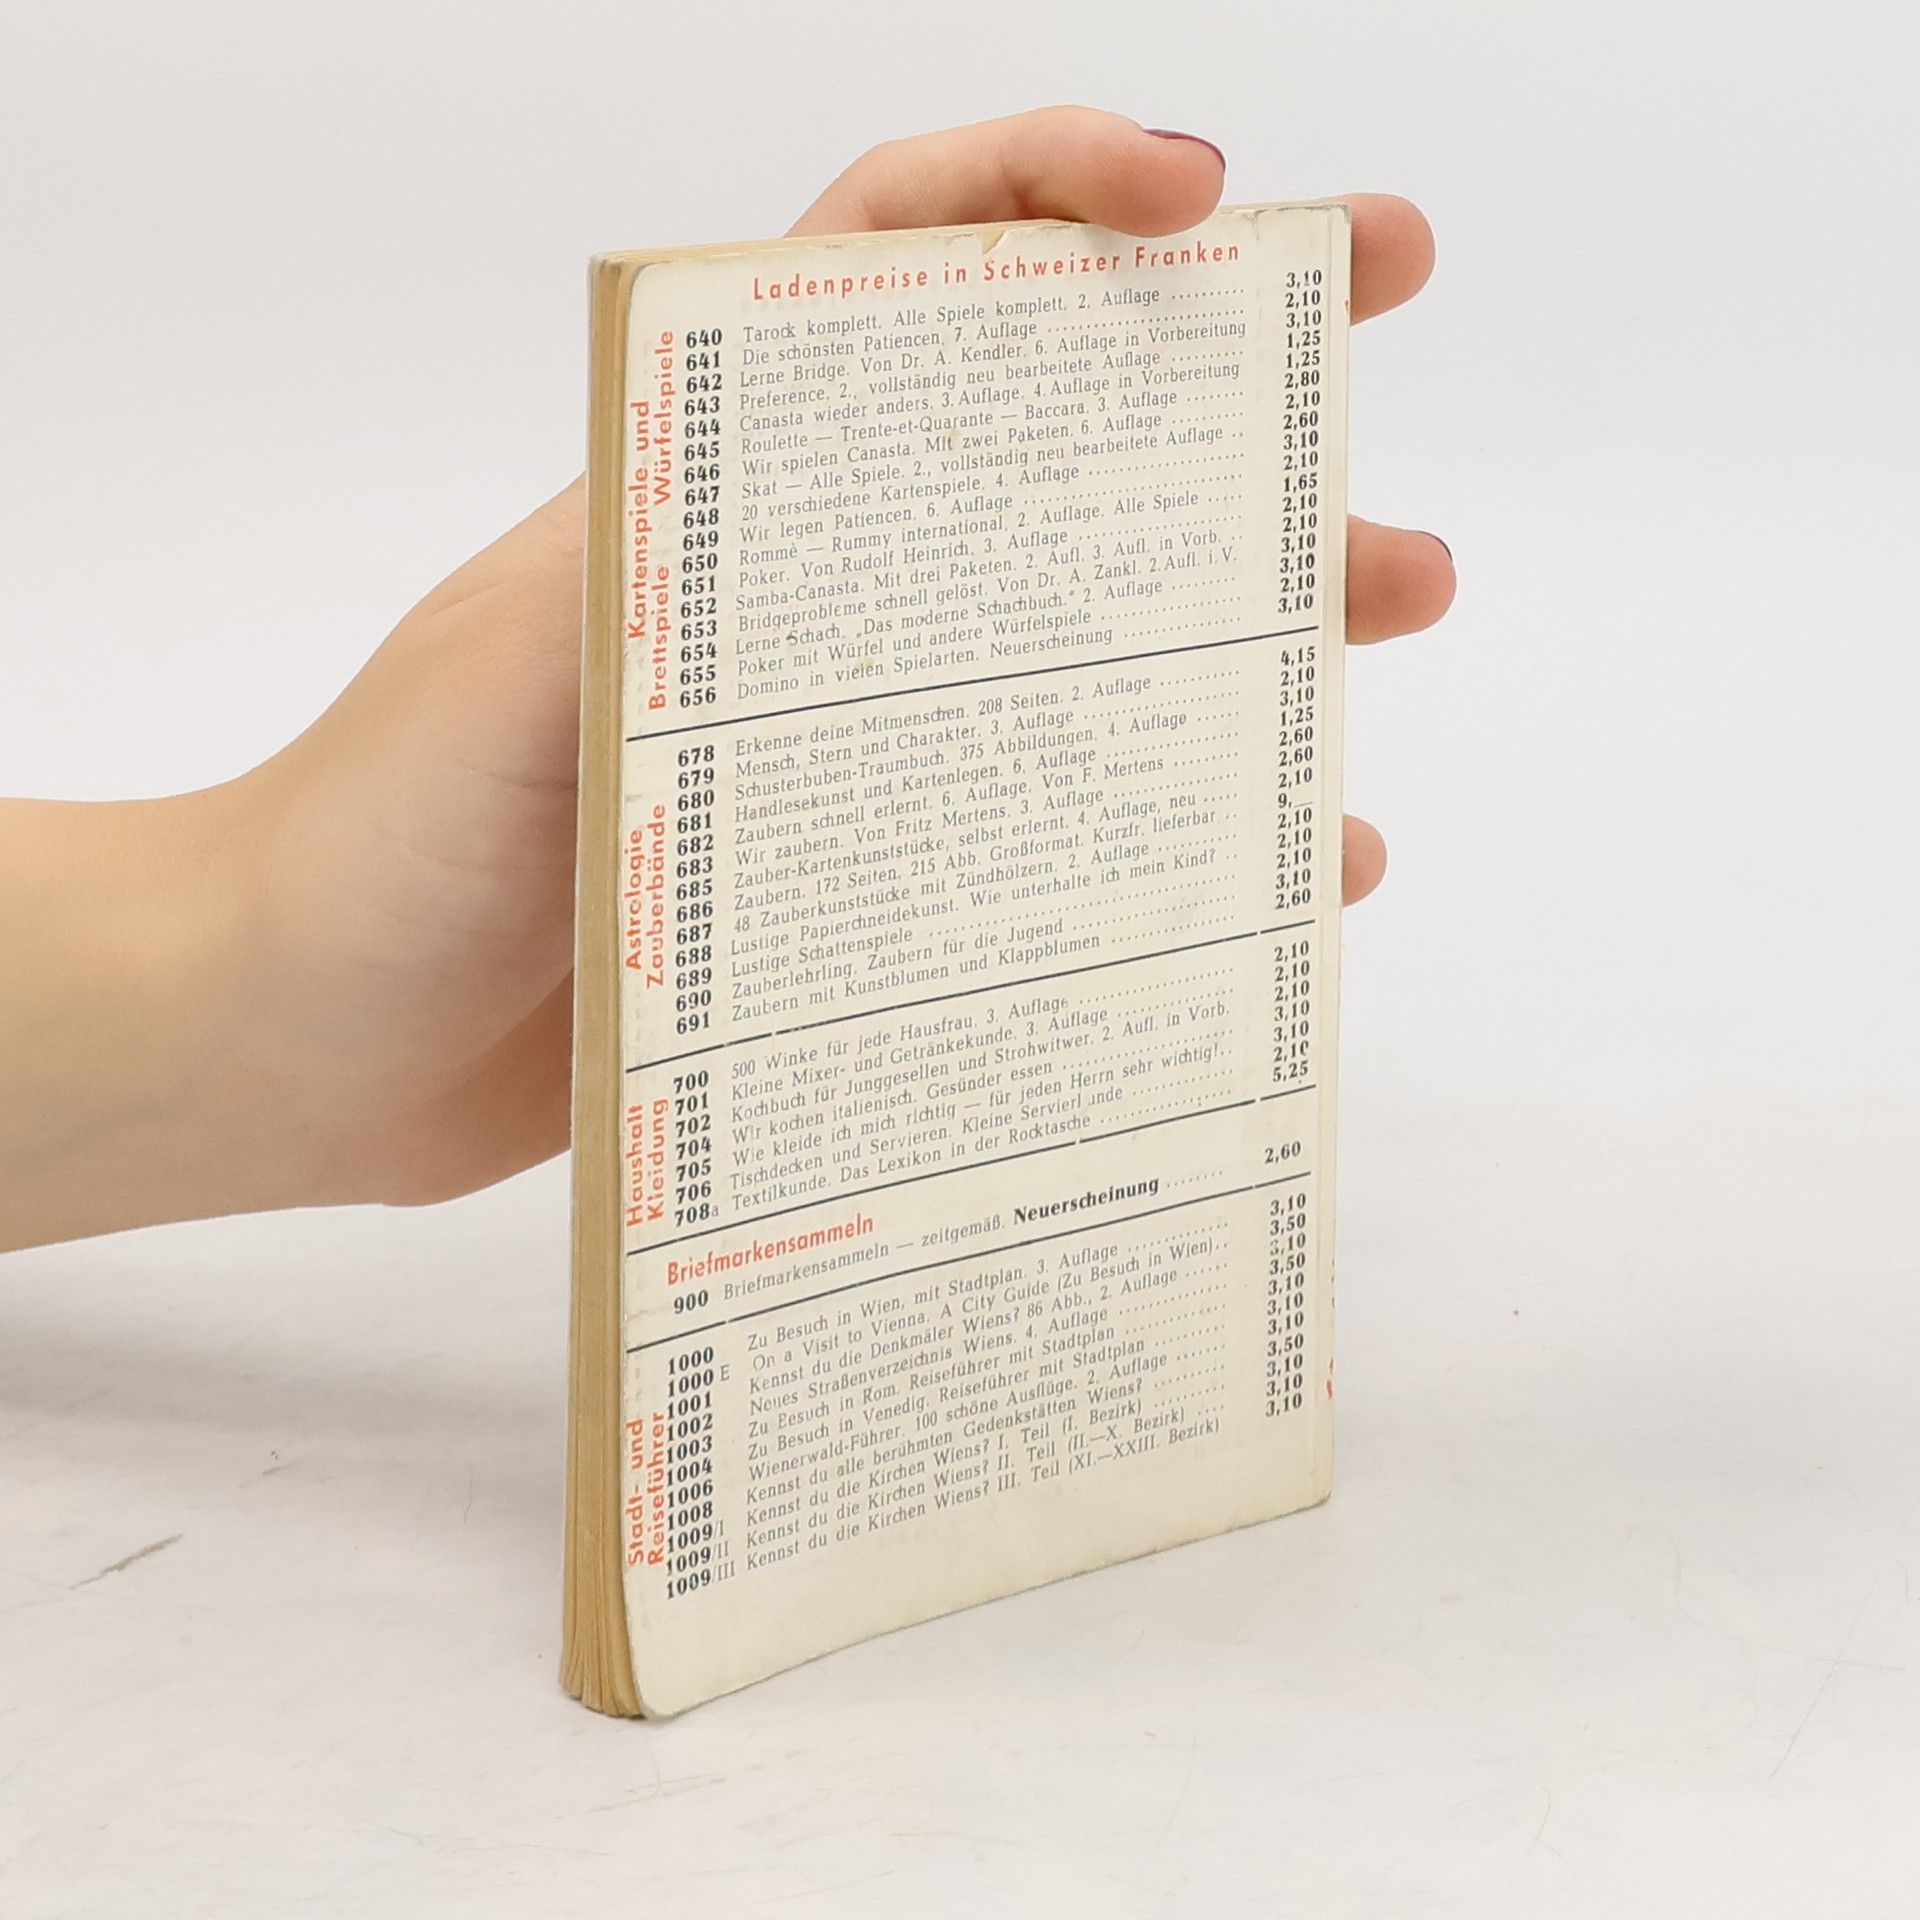 Ladenpreise in Schweizer Franken
Kartenspiele und
Brettspiele Würfelspiele
640 Tarock komplett. Alle Spiele komplett. 2. Auflage .......... 3,10
641 Die schönsten Patiencen, 7. Auflage .......... 2,10
642 Lerne Bridge. Von Dr. A. Kendler. 6. Auflage in Vorbereitung 3,10
643 Preference. 2., vollständig neu bearbeitete Auflage .......... 1,25
644 Canasta wieder anders. 3. Auflage. 4. Auflage in Vorbereitung 1,25
645 Roulette — Trente-et-Quarante — Baccara. 3. Auflage ........ 2,80
646 Wir spielen Canasta. Mit zwei Paketen. 6. Auflage .......... 2,10
647 Skat — Alle Spiele. 2., vollständig neu bearbeitete Auflage .. 2,60
648 20 verschiedene Kartenspiele. 4. Auflage .......... 3,10
649 Wir legen Patiencen. 6. Auflage .......... 2,10
650 Rommè — Rummy international. 2. Auflage. Alle Spiele ..... 1,65
651 Poker. Von Rudolf Heinrich. 3. Auflage .......... 2,10
652 Samba-Canasta. Mit drei Paketen. 2. Aufl. 3. Aufl. in Vorb. .. 2,10
653 Bridgeprobleme schnell gelöst. Von Dr. A. Zankl. 2. Aufl. i. V. 3,10
654 Lerne Schach. „Das moderne Schachbuch.“ 2. Auflage ......... 3,10
655 Poker mit Würfel und andere Würfelspiele .......... 2,10
656 Domino in vielen Spielarten. Neuerscheinung .......... 3,10
Astrologie
Zauberbände
678 Erkenne deine Mitmenschen. 208 Seiten. 2. Auflage .......... 4,15
679 Mensch, Stern und Charakter. 3. Auflage .......... 2,10
680 Schusterbuben-Traumbuch. 375 Abbildungen. 4. Auflage ...... 3,10
681 Handlesekunst und Kartenlegen. 6. Auflage .......... 1,25
682 Zaubern schnell erlernt. 6. Auflage. Von F. Mertens ......... 2,60
683 Wir zaubern. Von Fritz Mertens. 3. Auflage .......... 2,60
685 Zauber-Kartenkunststücke, selbst erlernt. 4. Auflage, neu ..... 2,10
686 Zaubern. 172 Seiten, 215 Abb. Großformat. Kurzfr. lieferbar .. 9,—
687 48 Zauberkunststücke mit Zündhölzern. 2. Auflage .......... 2,10
688 Lustige Papierchneidekunst. Wie unterhalte ich mein Kind? .. 2,10
689 Lustige Schattenspiele .......... 2,10
690 Zauberlehrling. Zaubern für die Jugend .......... 3,10
691 Zaubern mit Kunstblumen und Klappblumen .......... 2,60
Haushalt
Kleidung
700 500 Winke für jede Hausfrau. 3. Auflage .......... 2,10
701 Kleine Mixer- und Getränkekunde. 3. Auflage .......... 2,10
702 Kochbuch für Junggesellen und Strohwitwer. 2. Aufl. in Vorb. 2,10
704 Wir kochen italienisch. Gesünder essen .......... 3,10
705 Wie kleide ich mich richtig — für jeden Herrn sehr wichtig!.. 3,10
706 Tischdecken und Servieren. Kleine Servierkunde .......... 2,10
708a Textilkunde. Das Lexikon in der Rocktasche .......... 5,25
Briefmarkensammeln
900 Briefmarkensammeln — zeitgemäß. Neuerscheinung ........ 2,60
Stadt- und
Reiseführer
1000 Zu Besuch in Wien, mit Stadtplan. 3. Auflage .......... 3,10
1000 E On a Visit to Vienna. A City Guide (Zu Besuch in Wien).. 3,50
1001 Kennst du die Denkmäler Wiens? 86 Abb., 2. Auflage ...... 3,10
1002 Neues Straßenverzeichnis Wiens. 4. Auflage .......... 3,50
1003 Zu Besuch in Rom. Reiseführer mit Stadtplan .......... 3,10
1004 Zu Besuch in Venedig. Reiseführer mit Stadtplan .......... 3,10
1006 Wienerwald-Führer. 100 schöne Ausflüge. 2. Auflage ....... 3,10
1008 Kennst du alle berühmten Gedenkstätten Wiens? .......... 3,50
1009/I Kennst du die Kirchen Wiens? I. Teil (I. Bezirk) ......... 3,10
1009/II Kennst du die Kirchen Wiens? II. Teil (II.—X. Bezirk) .... 3,10
1009/III Kennst du die Kirchen Wiens? III. Teil (XI.—XXIII. Bezirk) 3,10